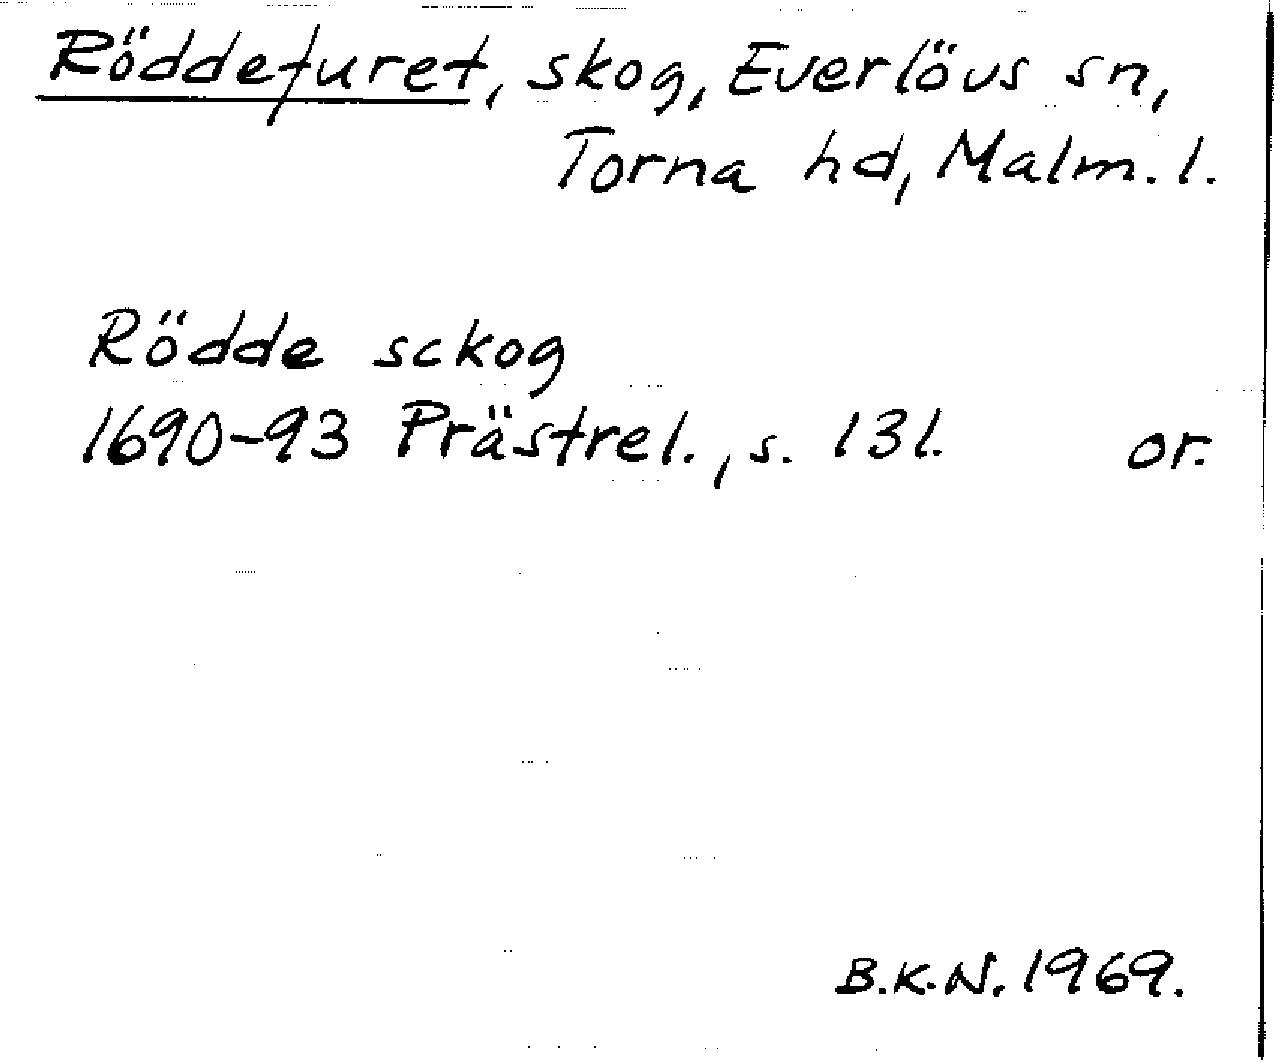 Röddefuret, skog, Everlövs sn,
Torna hd, Malm. l.
Rödde sckog
1690-93 Prästrel., s. 131. or.
B.K.N. 1969.